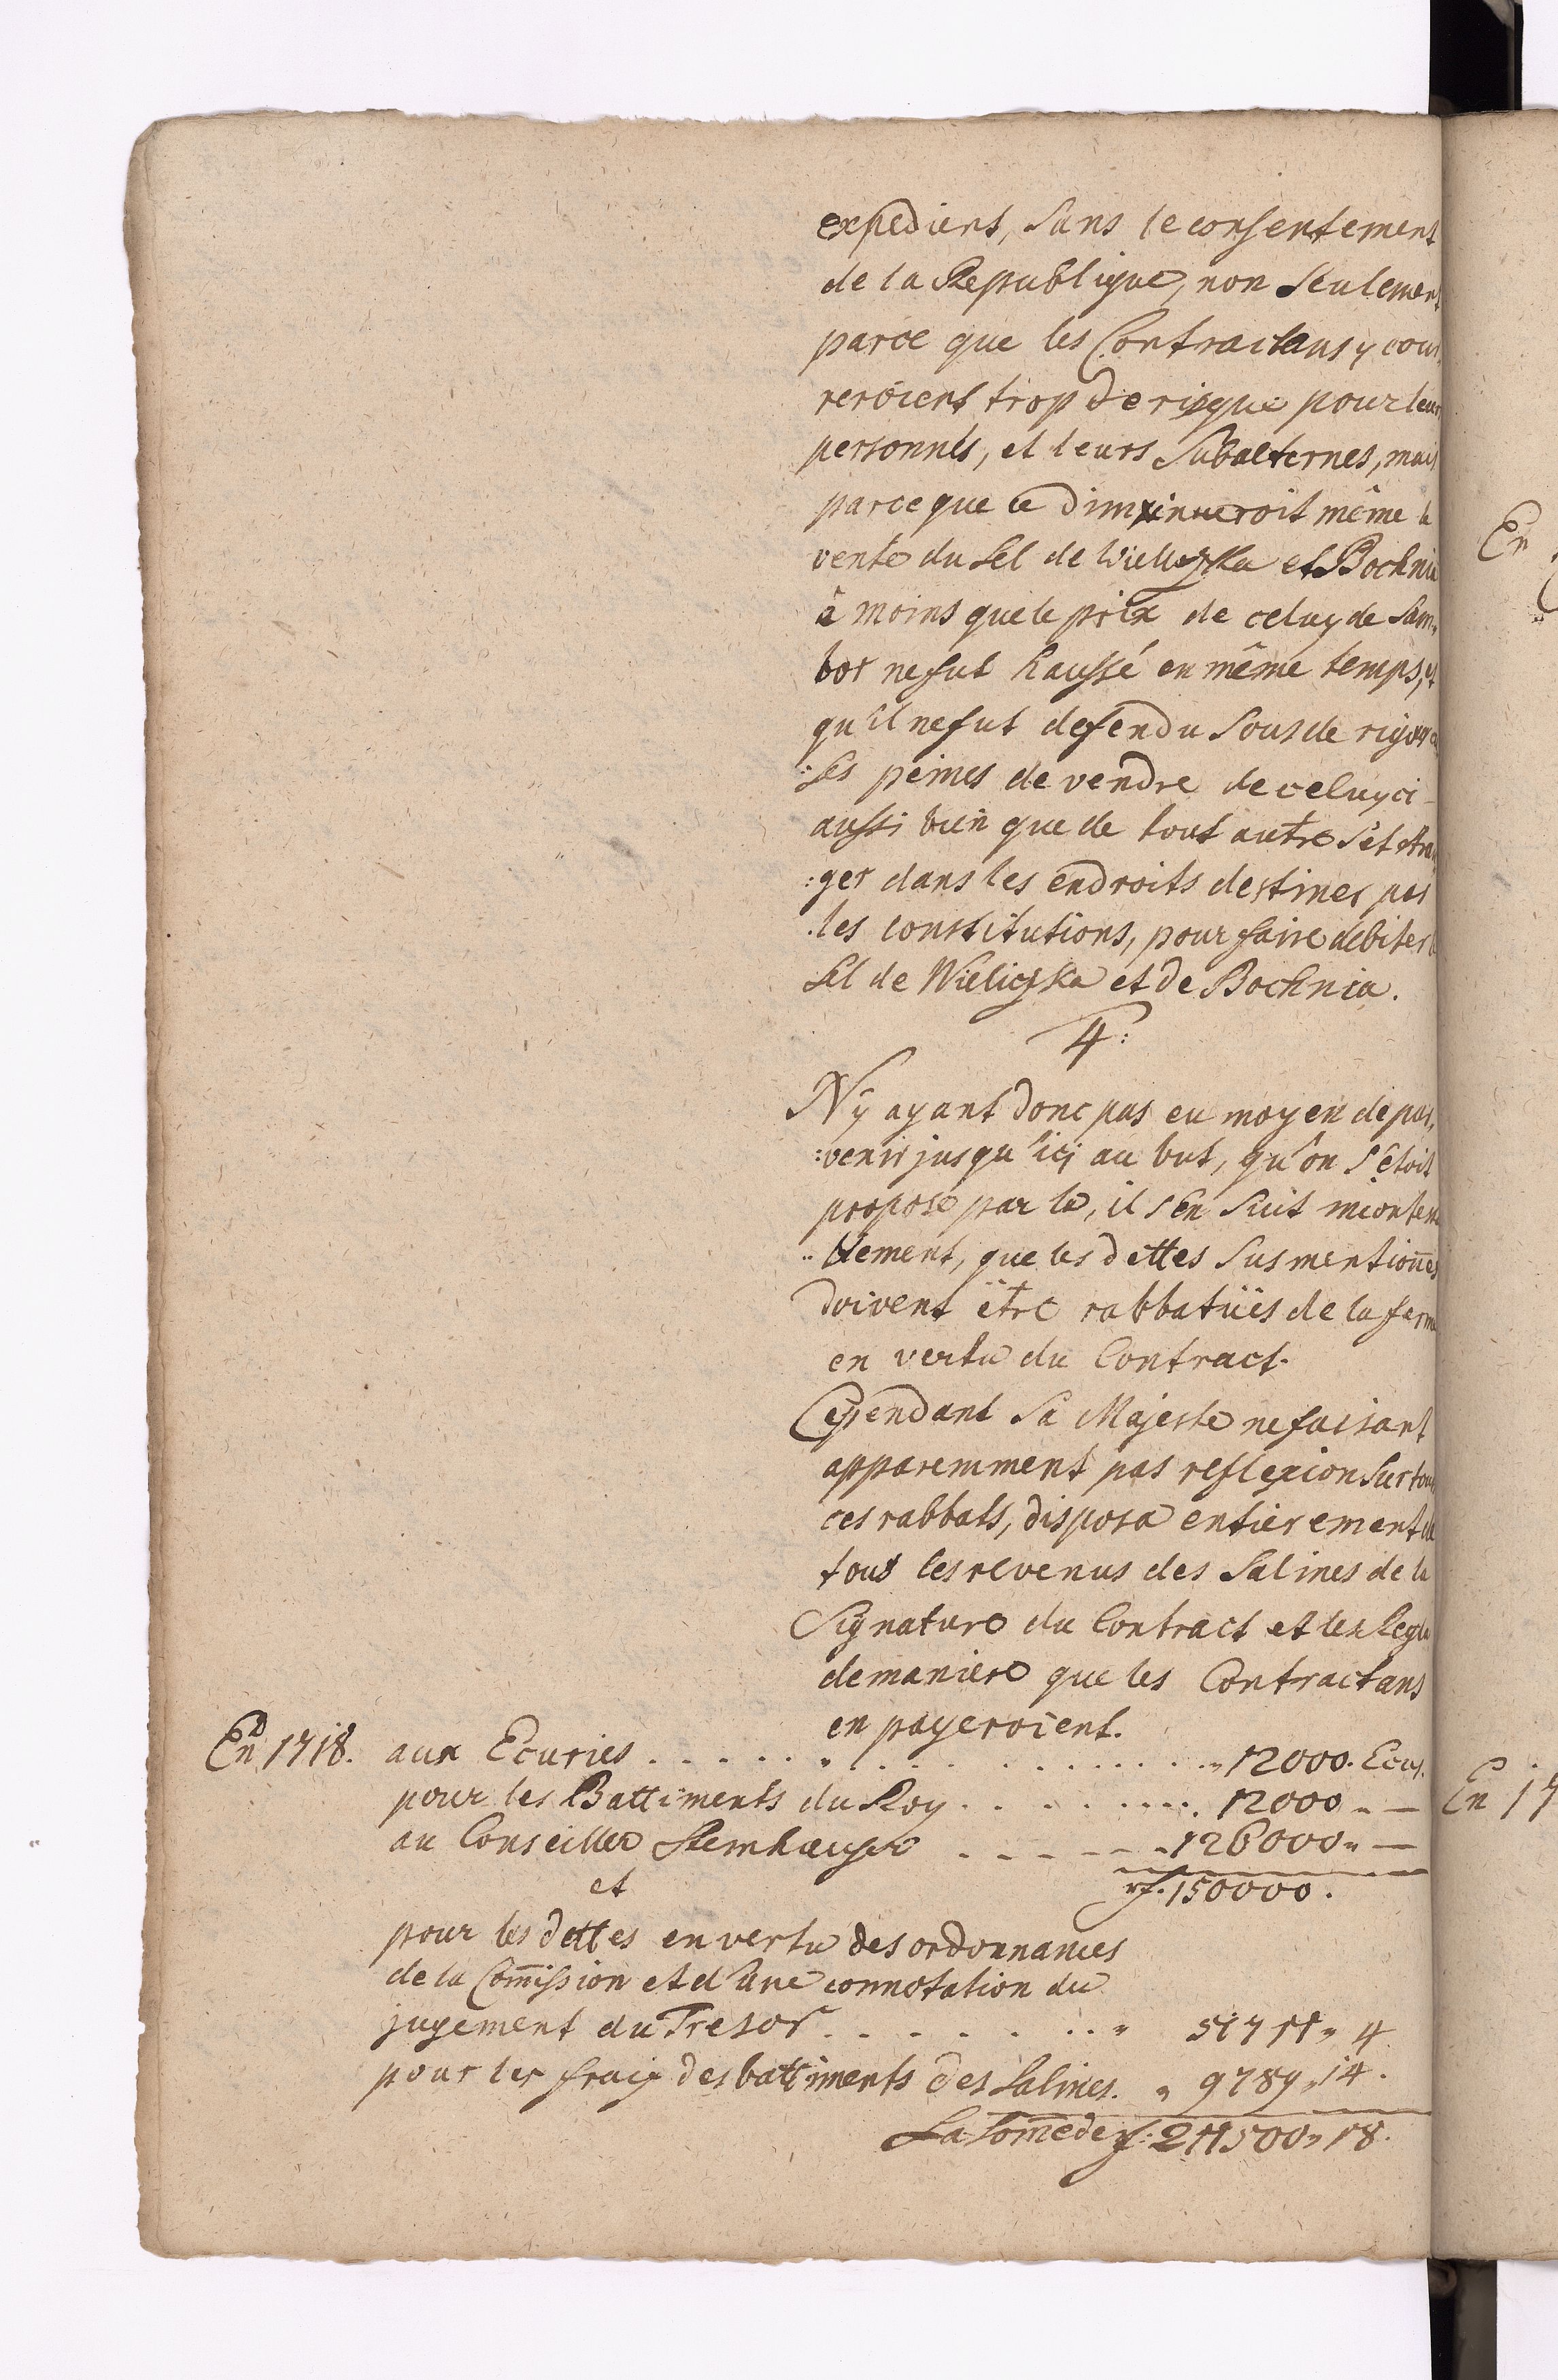 expediens, sans le consentement
de la Republique, non seulement
parce que les Contractans y cour
reroient trop de risque pour leurs
personnes, et leurs Subalternes, mais
parceque ce diminueroit même la
vente du Sel de Wieliczka et Bochnia
à moins que le prix de celuy de Sam
bor ne fut haussé en même temps, et
qu'il ne fut defendu sous de rigoureu
:ses peines de vendre de celuy ci
aussi bien que de tout autre sel etran
:ger dans les endroits destinez par
les constitutions, pour faire debiter le
Sel de Wieliczka et de Bochnia.
4:
N'y ayant donc pas eu moyen de par,
:venir jusqu'icy au but, qu'on s'étoit
proposé par là, il s'en suit incontesta
blement, que les dettes susmentioñes
doivent être rabbatües de la ferme
en vertu du Contract.
Cependant Sa Majesté ne faisant
apparemment pas reflexion sur tous
ces rabbats, disposa entierement de
tous les revenus des Salines de la
Signature du Contract et les Regla
de maniere que les Contractans
en payeroient.
En 1718. aux Ecuries . . . . . . . . . . . . 12000. Ecus.
pour les Battiments du Roy . . . . . . . 12000 „ —
au Conseiller Steinhäuser . . . . . 126000 „ —
et rf. 150000.
pour les dettes en vertu des ordonnances
de la Com̃ission et d'une connotation du
jugement du Tresor . . . . . . „ 51711 „ 4
pour les fraix des battiments des Salines. „ 9789 „ 14.
La som̃e de rf: 211500 „ 18.
En
En 17